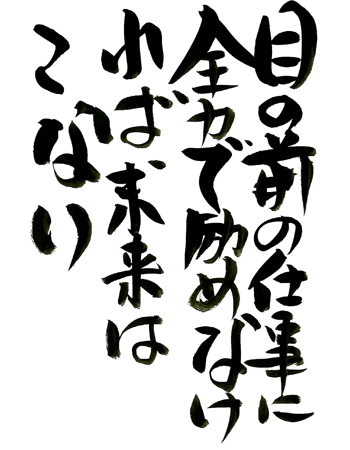 目の前の仕事に
全力で励めなけ
れば未来は
こない